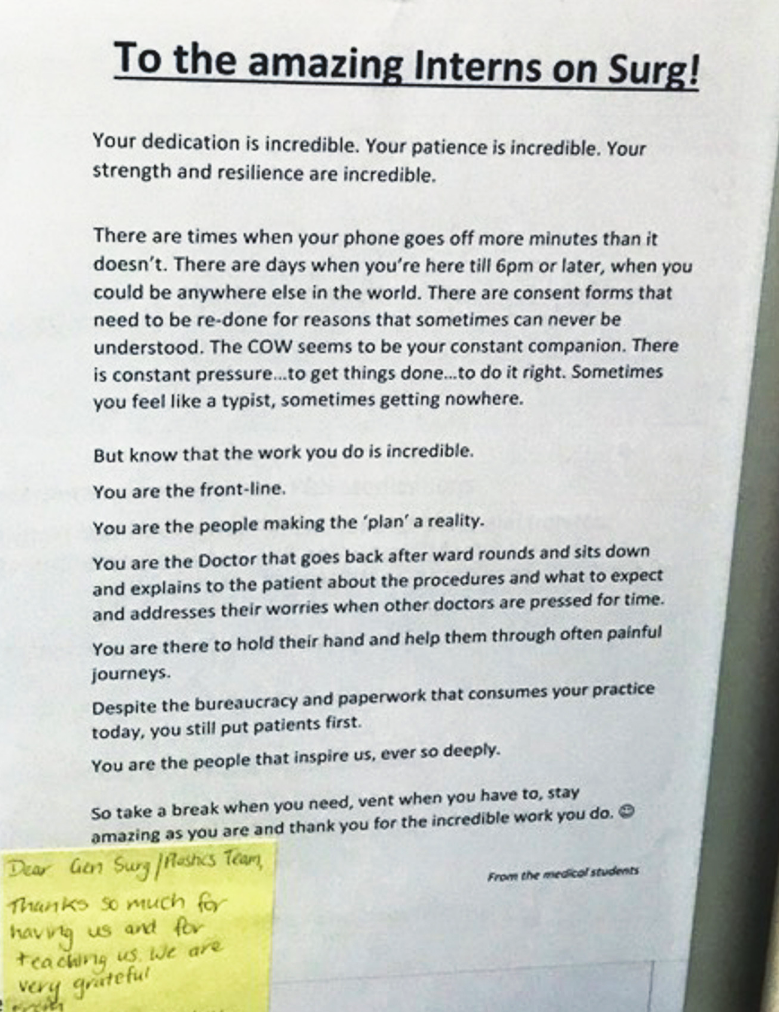 To the amazing Interns on Surg!
Your dedication is incredible. Your patience is incredible. Your
strength and resilience are incredible.
There are times when your phone goes off more minutes than it
doesn't. There are days when you're here till 6pm or later, when you
could be anywhere else in the world. There are consent forms that
need to be re-done for reasons that sometimes can never be
understood. The COW seems to be your constant companion. There
is constant pressure...to get things done...to do it right. Sometimes
you feel like a typist, sometimes getting nowhere.
But know that the work you do is incredible.
You are the front-line.
You are the people making the 'plan' a reality.
You are the Doctor that goes back after ward rounds and sits down
and explains to the patient about the procedures and what to expect
and addresses their worries when other doctors are pressed for time.
You are there to hold their hand and help them through often painful
journeys.
Despite the bureaucracy and paperwork that consumes your practice
today, you still put patients first.
You are the people that inspire us, ever so deeply.
So take a break when you need, vent when you have to, stay
amazing as you are and thank you for the incredible work you do. ☺
From the medical students
Dear Gen Surg/Plastics Team,
Thanks so much for
having us and for
teaching us. We are
very grateful